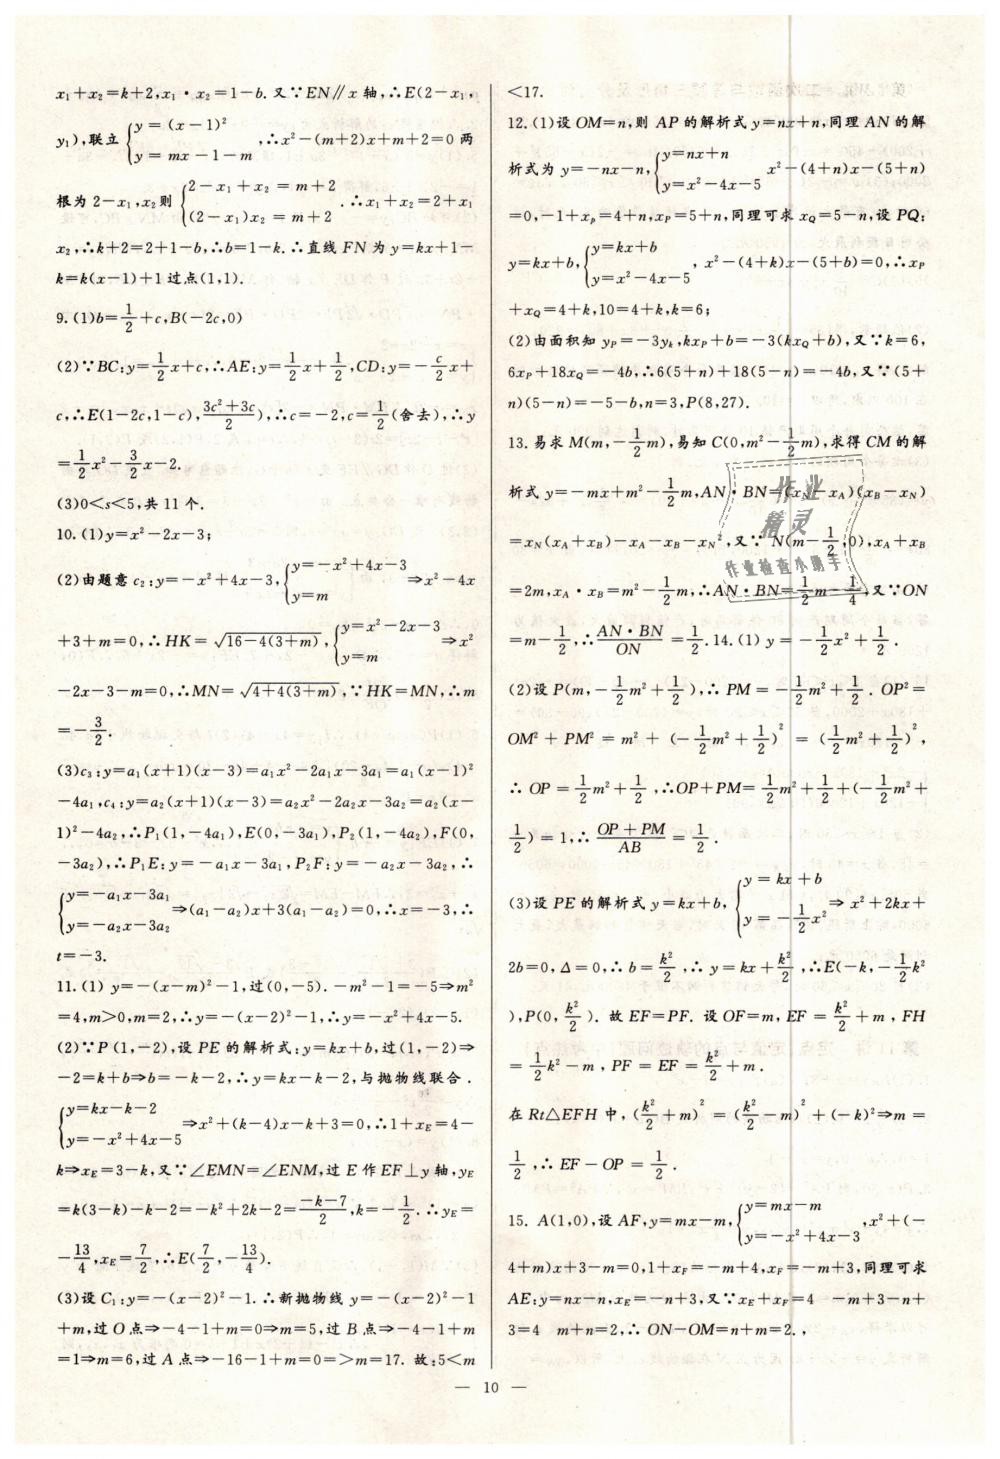 x₁+x₂=k+2,x₁·x₂=1-b.又∵EN∥x轴,∴E(2-x₁,
y₁),联立{y=(x-1)² y=mx-1-m,∴x²-(m+2)x+m+2=0两
根为2-x₁,x₂则{2-x₁+x₂=m+2 (2-x₁)x₂=m+2.∴x₁+x₂=2+x₁
x₂,∴k+2=2+1-b,∴b=1-k.∴直线FN为y=kx+1-
k=k(x-1)+1过点(1,1).
9.(1)b=1/2+c,B(-2c,0)
(2)∵BC:y=1/2x+c,∴AE:y=1/2x+1/2,CD:y=-c/2x+
c,∴E(1-2c,1-c),(3c²+3c)/2),∴c=-2,c=1/2(舍去),∴y
=1/2x²-3/2x-2.
(3)0<s<5,共11个.
10.(1)y=x²-2x-3;
(2)由题意c₂:y=-x²+4x-3,{y=-x²+4x-3 y=m⇒x²-4x
+3+m=0,∴HK=√(16-4(3+m)),{y=x²-2x-3 y=m⇒x²
-2x-3-m=0,∴MN=√(4+4(3+m)),∵HK=MN,∴m
=-3/2.
(3)c₃:y=a₁(x+1)(x-3)=a₁x²-2a₁x-3a₁=a₁(x-1)²
-4a₁,c₄:y=a₂(x+1)(x-3)=a₂x²-2a₂x-3a₂=a₂(x-
1)²-4a₂,∴P₁(1,-4a₁),E(0,-3a₁),P₂(1,-4a₂),F(0,
-3a₂),∴P₁E:y=-a₁x-3a₁,P₂F:y=-a₂x-3a₂,∴
{y=-a₁x-3a₁ y=-a₂x-3a₂⇒(a₁-a₂)x+3(a₁-a₂)=0,∴x=-3,∴
t=-3.
11.(1)y=-(x-m)²-1,过(0,-5).-m²-1=-5⇒m²
=4,m>0,m=2,∴y=-(x-2)²-1,∴y=-x²+4x-5.
(2)∵P(1,-2),设PE的解析式:y=kx+b,过(1,-2)⇒
-2=k+b⇒b=-k-2,∴y=kx-k-2,与抛物线联合.
{y=kx-k-2 y=-x²+4x-5⇒x²+(k-4)x-k+3=0,∴1+x_E=4-
k⇒x_E=3-k,又∵∠EMN=∠ENM,过E作EF⊥y轴,y_E
=k(3-k)-k-2=-k²+2k-2=(-k-7)/2,k=-1/2.∴y_E=
-13/4,x_E=7/2,∴E(7/2,-13/4).
(3)设C₁:y=-(x-2)²-1.∴新抛物线y=-(x-2)²-1
+m,过O点⇒-4-1+m=0⇒m=5,过B点⇒-4-1+m
=1⇒m=6,过A点⇒-16-1+m=0=>m=17.故:5<m
<17.
12.(1)设OM=n,则AP的解析式y=nx+n,同理AN的解
析式为y=-nx-n,{y=nx+n y=x²-4x-5 x²-(4+n)x-(5+n)
=0,-1+x_p=4+n,x_P=5+n,同理可求x_Q=5-n,设PQ:
y=kx+b,{y=kx+b y=x²-4x-5,x²-(4+k)x-(5+b)=0,∴x_P
+x_Q=4+k,10=4+k,k=6;
(2)由面积知y_P=-3y_k,kx_P+b=-3(kx_Q+b),又∵k=6,
6x_P+18x_Q=-4b,∴6(5+n)+18(5-n)=-4b,又∵(5+
n)(5-n)=-5-b,n=3,P(8,27).
13.易求M(m,-1/2m),易知C(0,m²-1/2m),求得CM的解
析式y=-mx+m²-1/2m,AN·BN=(x_N-x_A)(x_B-x_N)
=x_N(x_A+x_B)-x_A-x_B-x_N²,又∵N(m-1/2,0),x_A+x_B
=2m,x_A·x_B=m²-1/2m,∴AN·BN=1/2m-1/4,又∵ON
=m-1/2,∴AN·BN/ON=1/2.14.(1)y=-1/2x²+1/2.
(2)设P(m,-1/2m²+1/2),∴PM=-1/2m²+1/2.OP²=
OM²+PM²=m²+(-1/2m²+1/2)²=(1/2m²+1/2)²,
∴OP=1/2m²+1/2,∴OP+PM=1/2m²+1/2+(-1/2m²+
1/2)=1,∴(OP+PM)/AB=1/2.
(3)设PE的解析式y=kx+b,{y=kx+b y=-1/2x²⇒x²+2kx+
2b=0,Δ=0,∴b=k²/2,∴y=kx+k²/2,∴E(-k,-1/2k²
),P(0,k²/2).故EF=PF.设OF=m,EF=k²/2+m,FH
=1/2k²-m,PF=EF=k²/2+m.
在Rt△EFH中,(k²/2+m)²=(k²/2-m)²+(-k)²⇒m=
1/2,∴EF-OP=1/2.
15.A(1,0),设AF,y=mx-m,{y=mx-m y=-x²+4x-3,x²+(-
4+m)x+3-m=0,1+x_F=-m+4,x_F=-m+3,同理可求
AE:y=nx-n,x_E=-n+3,又∵x_E+x_F=4 -m+3-n+
3=4 m+n=2,∴ON-OM=n+m=2.,
作业
精灵
作业检查小助手
— 10 —